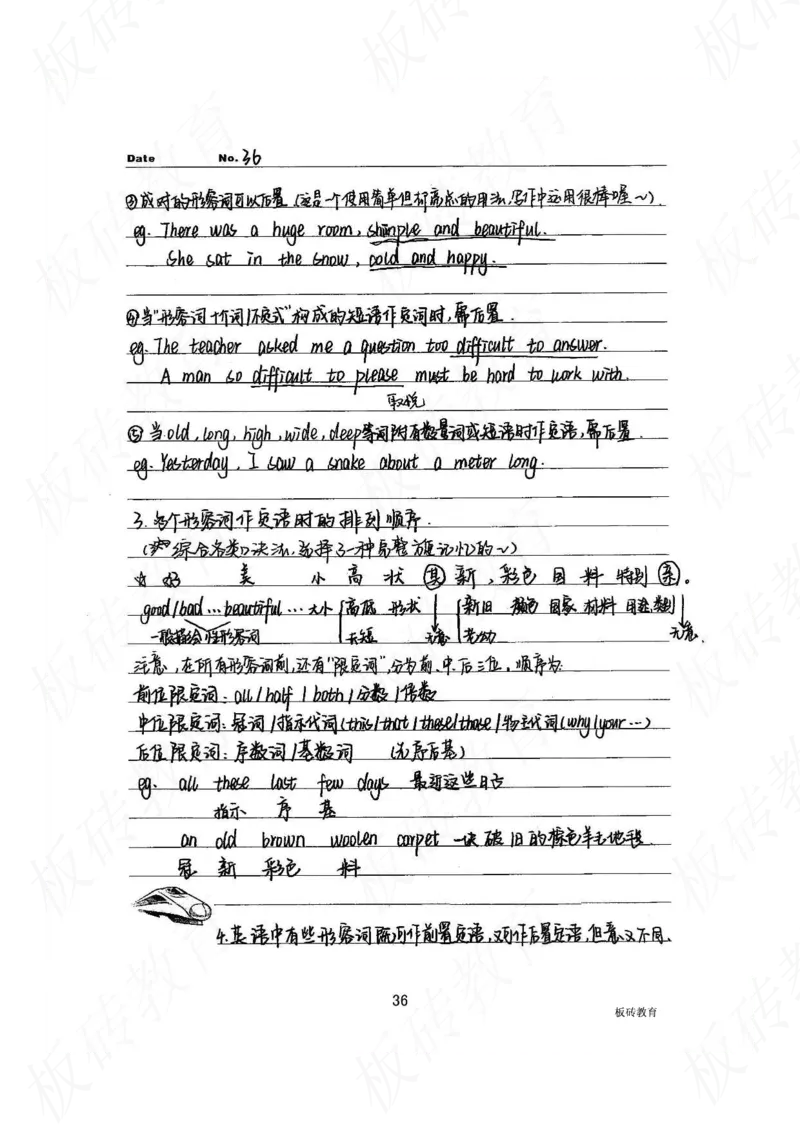 Date No. 36
③成对的形容词可以后置 (这是一个使用简单但抓高点的用法,写作中运用很棒喔～).
eg. There was a huge room, shimple and beautiful.
She sat in the snow, cold and happy.
④当"形容词+介词/不定式"构成的短语作定词时,需后置.
eg. The teacher asked me a question too difficult to answer.
A man so difficult to please must be hard to work with.
取悦
⑤当old, long, high, wide, deep等词附有数量词或短语时作定语,需后置.
eg. Yesterday, I saw a snake about a meter long.
3. 各个形容词作定语时的排列顺序.
综合各类口决法,选择了一种易整方便记忆的～)
☆ 好 美 小 高 状 某 新, 彩色 国 料 特别 亲。
good/bad...beautiful... 大小 高低 形状 新旧 颜色 国家 材料 用途,类别
一般描绘性形容词 长短 无意 老幼 无意.
注意,在所有形容词前,还有"限定词",分为前、中、后三位。顺序为:
前位限定词: all/half/both/分数/倍数
中位限定词: 冠词/指示代词(this/that/these/those/物主代词(why/your...)
后位限定词: 序数词/基数词 (先序后基)
eg. all these last few days 最近这些日子
指示 序 基
an old brown woolen carpet 一块破旧的棕色羊毛地毯
冠 新 彩色 料
4.英语中有些形容词既可作前置定语,又可作后置定语,但意义不同.
36
板砖教育